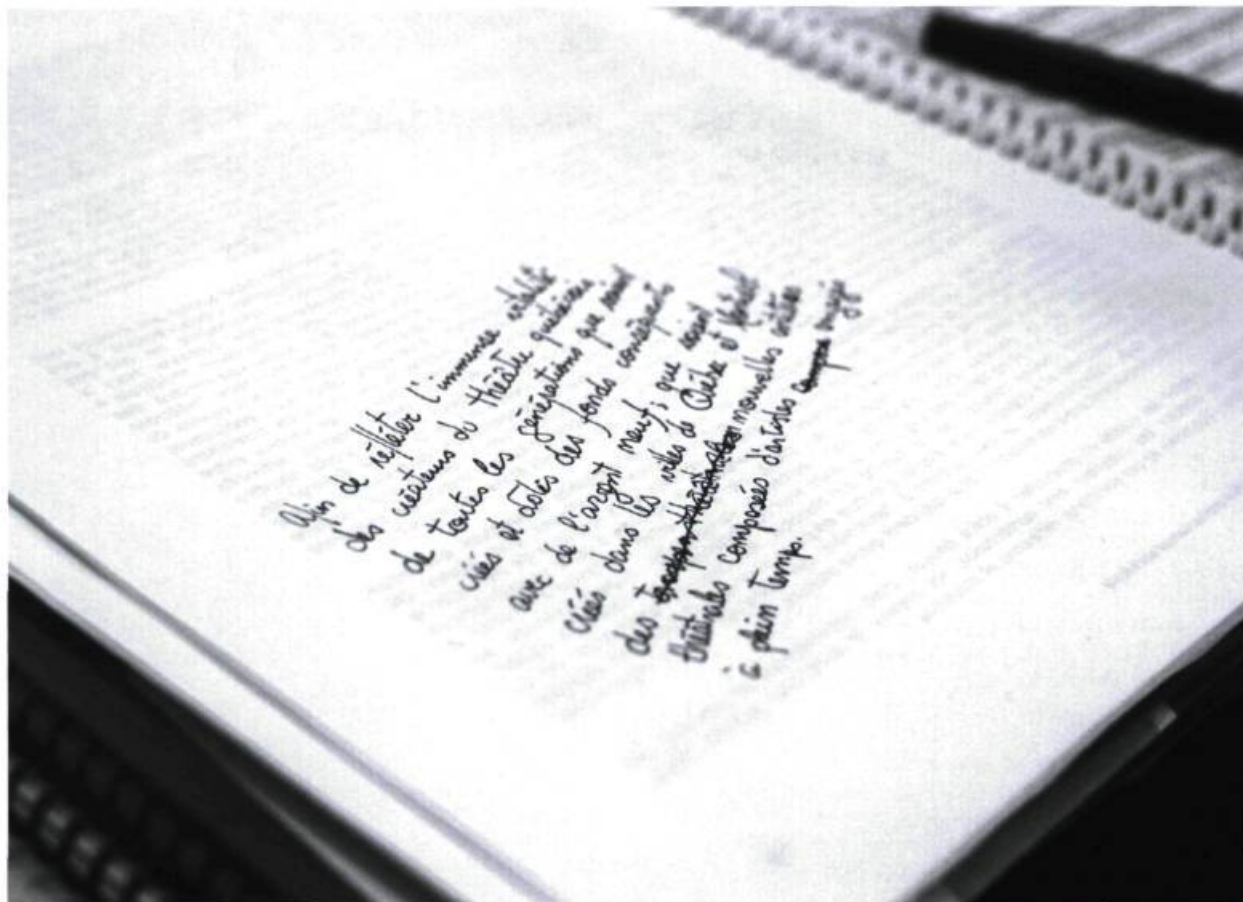 afin de refléter l'immense vitalité
des créateurs du théâtre québécois
de toutes les générations que soient
créés et dotés des fonds conséquents
avec de l'argent neuf; que soient
créés dans les villes de Québec et Montréal
des troupes théâtrales nouvelles entités
théâtrales composées d'artistes engagés
à plein temps.